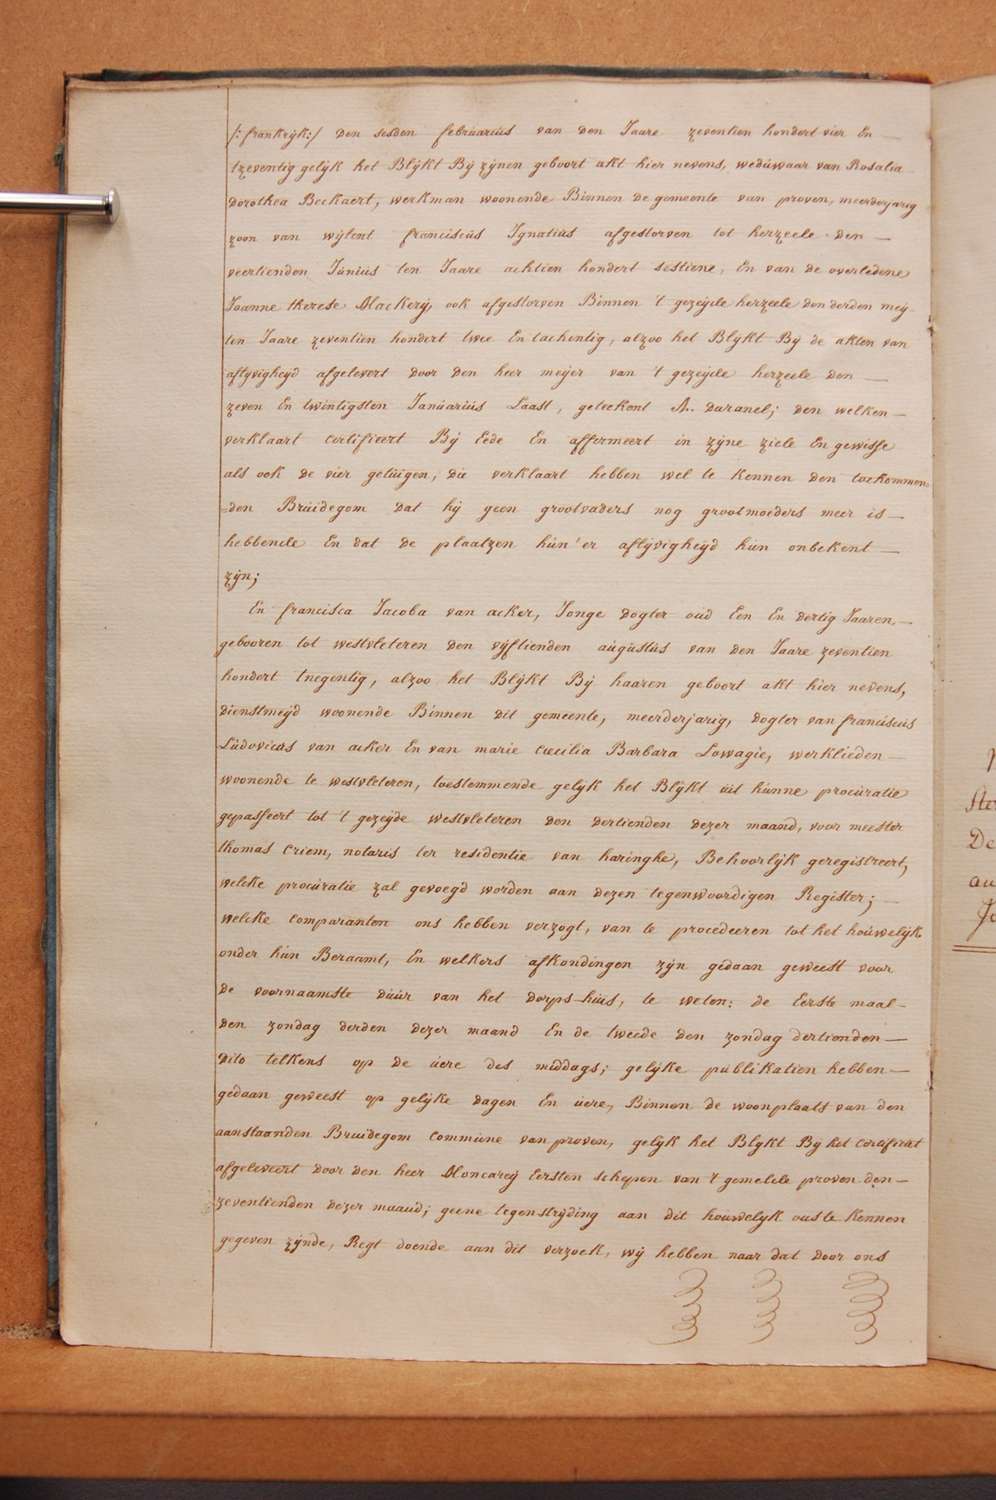 /: frankrijk:/ den sesden februarius van den Jaare zeventien hondert vier En —
tzeventig gelijk het Blijkt Bij zijnen geboort akt hier nevens, weduwaar van Rosalia
dorothea Beckaert, werkman woonende Binnen de gemeente van proven, meerderjarig
zoon van wijlent franciscus Ignatius afgestorven tot herzeele den —
veertienden Junius ten Jaare achtien hondert sestiene, En van de overledene
Joanne therese Mackerij, ook afgestorven Binnen 't gezeijde herzeele den derden meij
ten Jaare zeventien hondert twee En tachentig, alzoo het Blijkt Bij de akten van
aflijvigheijd afgelevert door den heer meijer van 't gezeijde herzeele den —
zeven En twintigsten Januarius Laast, geteekent A. daranel; den welken —
verklaart certifieert Bij Eede En affirmeert in zijne ziele En gewisse
als ook de vier getuigen, die verklaart hebben wel te kennen den toekommen-
den Bruidegom dat hij geen grootvaders nog grootmoeders meer is —
hebbende En dat de plaatzen hun'er aflijvigheijd hun onbekent —
zijn;
En francisca Jacoba van acker, Jonge dogter oud Een En dertig Jaaren —
gebooren tot westvleteren den vijftienden augustus van den Jaare zeventien
hondert tnegentig, alzoo het Blijkt Bij haaren geboort akt hier nevens,
dienstmeijd woonende Binnen dit gemeente, meerderjarig, dogter van franciscus
Ludovicus van acker En van marie cecilia Barbara Lowagie, werklieden —
woonende te westvleteren, toestemmende gelijk het Blijkt uit hunne procuratie
gepasseert tot 't gezeijde westvleteren den dertienden dezer maand, voor meester
thomas Criem, notaris ter residentie van haringhe, Behoorlijk geregistreert,
welcke procuratie zal gevoegd worden aan dezen tegenwoordigen Register; —
welcke comparanten ons hebben verzogt, van te procedeeren tot het houwelijk
onder hun Beraamt, En welkers afkondingen zijn gedaan geweest voor
de voornaamste duur van het dorps-huis, te weten: de Eerste maal —
den zondag derden dezer maand En de tweede den zondag dertienden —
dito telkens op de uere des middags; gelijke publikatien hebben —
gedaan geweest op gelijke dagen En uere, Binnen de woonplaats van den
aanstaanden Bruidegom commune van proven, gelijk het Blijkt Bij het certificat
afgelevert door den heer Moncareij Eersten schepen van 't gemelde proven den —
zeventienden dezer maand; geene tegenstrijding aan dit houwelijk ons te kennen
gegeven zijnde, Regt doende aan dit verzoek, wij hebben naar dat door ons